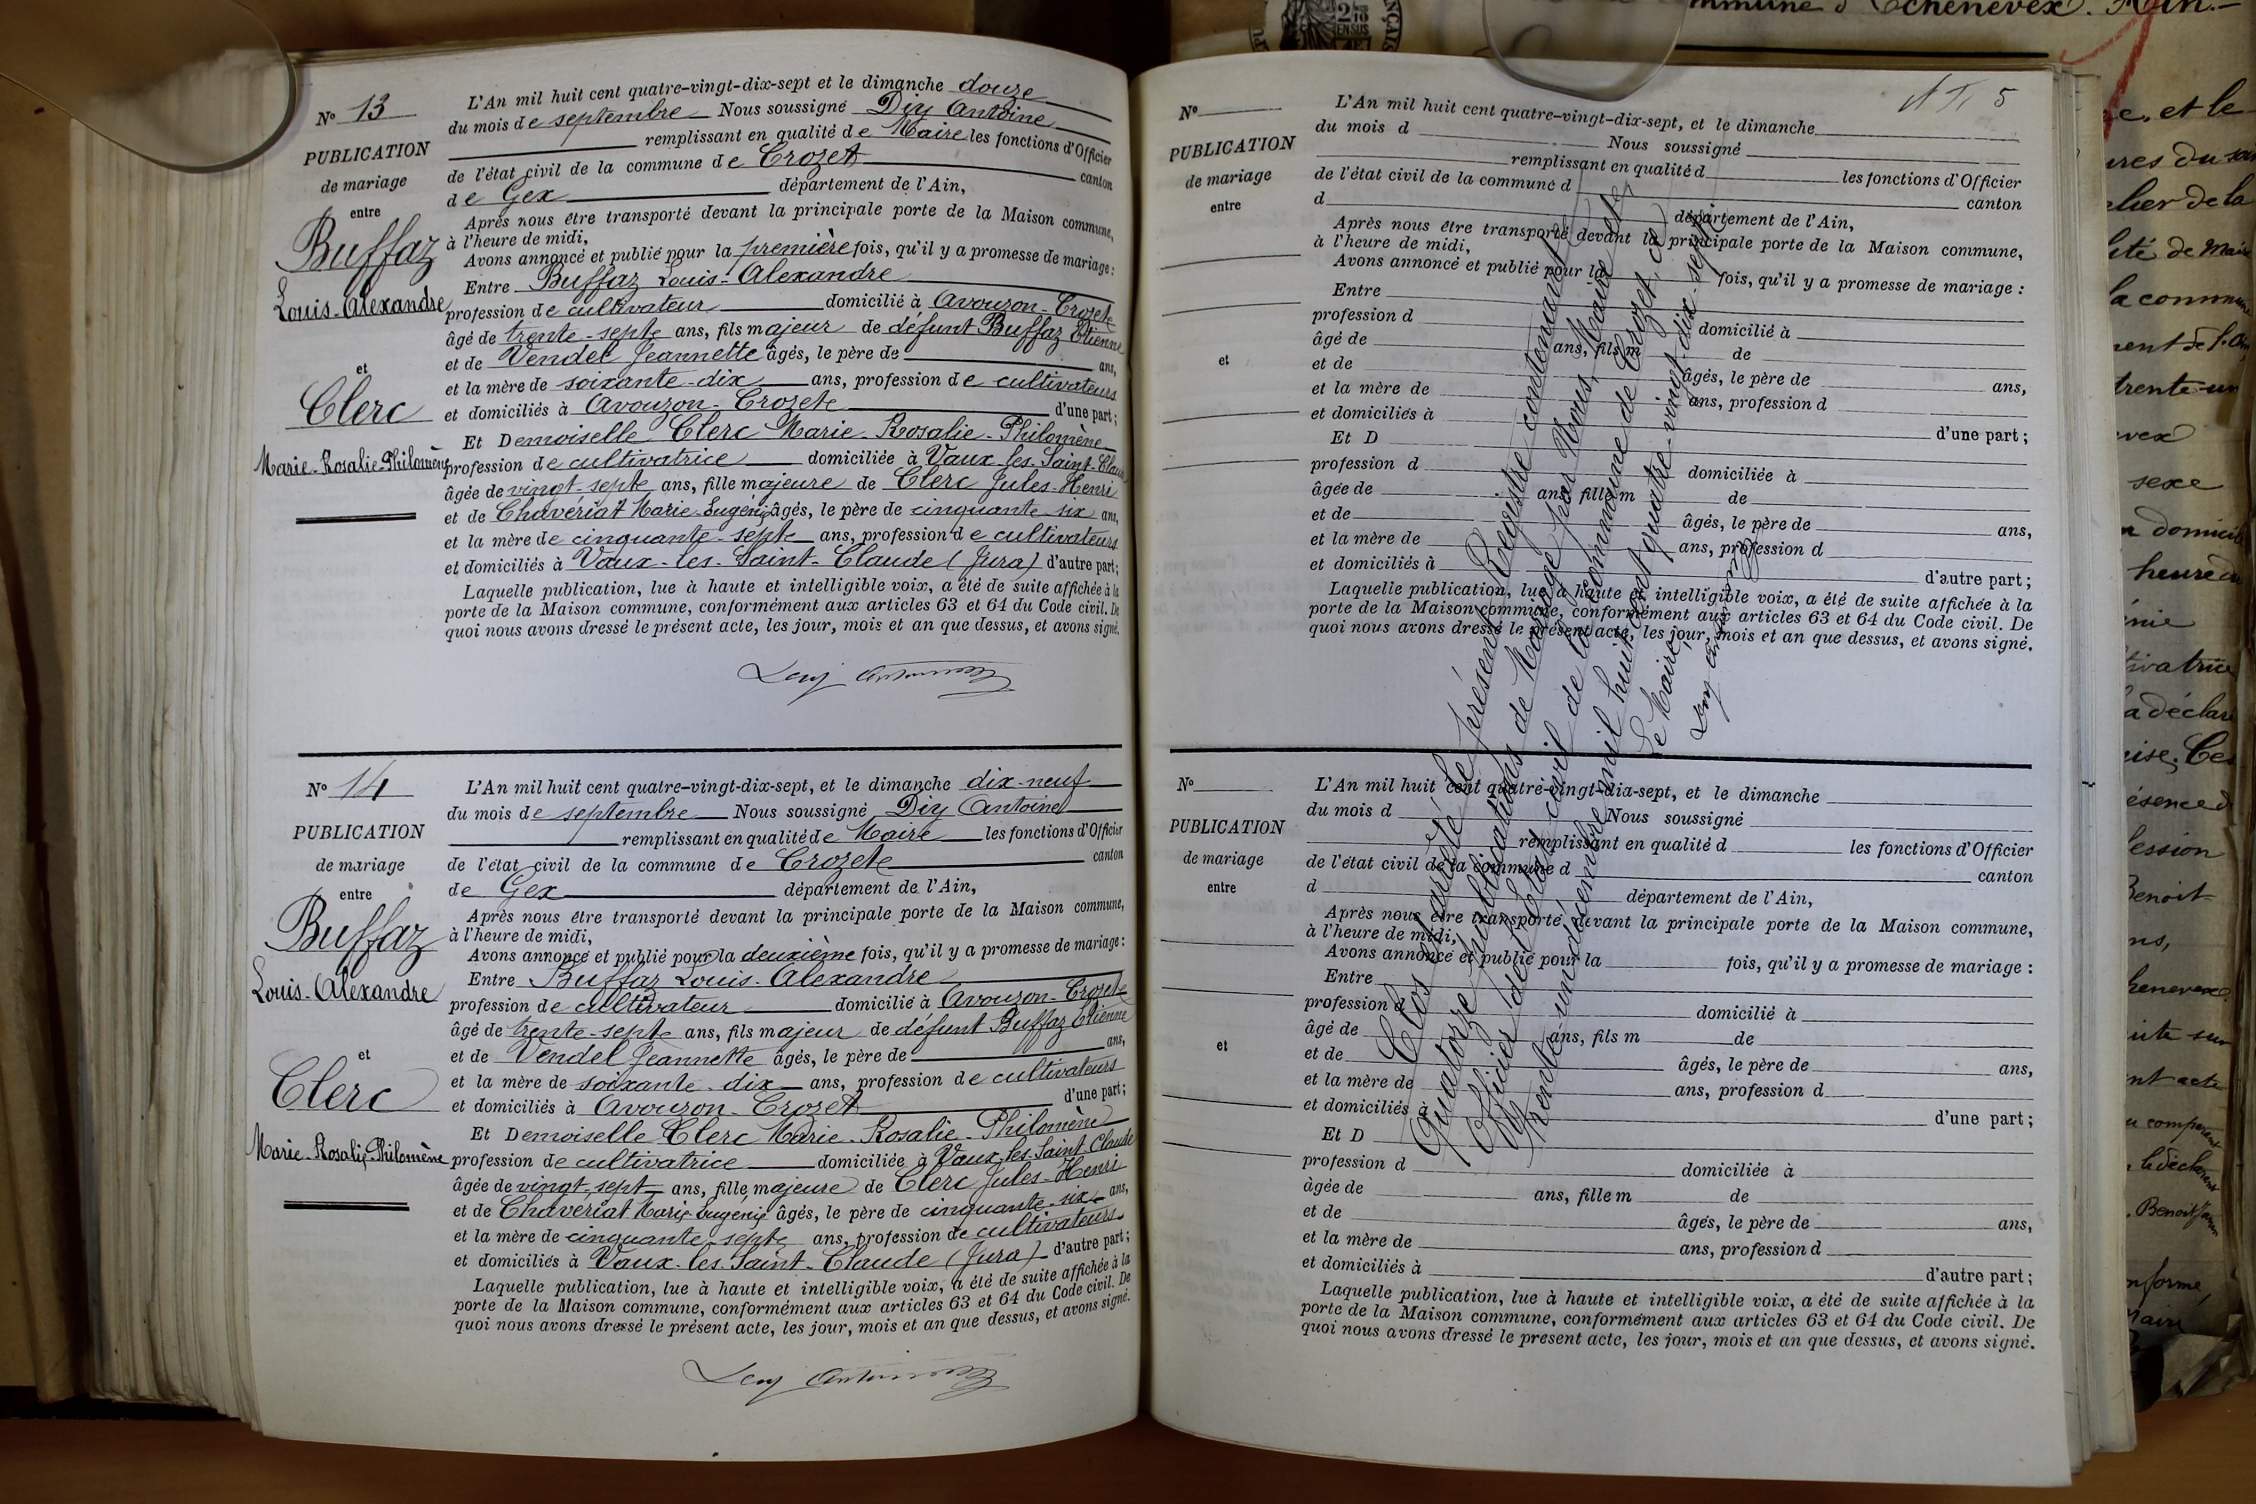 N° 13
PUBLICATION
de mariage
entre
Buffaz
Louis-Alexandre
et
Clerc
Marie-Rosalie-Philomène
L'An mil huit cent quatre-vingt-dix-sept et le dimanche douze
du mois de septembre Nous soussigné Diy Antoine
remplissant en qualité de Maire les fonctions d'Officier
de l'état civil de la commune de Crozet canton
de Gex département de l'Ain,
Après nous être transporté devant la principale porte de la Maison commune,
à l'heure de midi,
Avons annoncé et publié pour la première fois, qu'il y a promesse de mariage :
Entre Buffaz Louis-Alexandre
profession de cultivateur domicilié à Avouzon-Crozet
âgé de trente-sept ans, fils majeur de défunt Buffaz Etienne
et de Vendel Jeannette âgés, le père de ans,
et la mère de soixante-dix ans, profession de cultivateurs
et domiciliés à Avouzon-Crozet d'une part ;
Et Demoiselle Clerc Marie-Rosalie-Philomène
profession de cultivatrice domiciliée à Vaux-les-Saint-Claude
âgée de vingt-sept ans, fille majeure de Clerc Jules-Henri
et de Chavériat Marie-Eugénie âgés, le père de cinquante-six ans,
et la mère de cinquante-sept ans, profession de cultivateurs
et domiciliés à Vaux-les-Saint-Claude (Jura) d'autre part ;
Laquelle publication, lue à haute et intelligible voix, a été de suite affichée à la
porte de la Maison commune, conformément aux articles 63 et 64 du Code civil. De
quoi nous avons dressé le présent acte, les jour, mois et an que dessus, et avons signé.
N° 14
PUBLICATION
de mariage
entre
Buffaz
Louis-Alexandre
et
Clerc
Marie-Rosalie-Philomène
L'An mil huit cent quatre-vingt-dix-sept, et le dimanche dix-neuf
du mois de septembre Nous soussigné Diy Antoine
remplissant en qualité de Maire les fonctions d'Officier
de l'état civil de la commune de Crozet canton
de Gex département de l'Ain,
Après nous être transporté devant la principale porte de la Maison commune,
à l'heure de midi,
Avons annoncé et publié pour la deuxième fois, qu'il y a promesse de mariage :
Entre Buffaz Louis-Alexandre
profession de cultivateur domicilié à Avouzon-Crozet
âgé de trente-sept ans, fils majeur de défunt Buffaz Etienne
et de Vendel Jeannette âgés, le père de ans,
et la mère de soixante-dix ans, profession de cultivateurs
et domiciliés à Avouzon-Crozet d'une part ;
Et Demoiselle Clerc Marie-Rosalie-Philomène
profession de cultivatrice domiciliée à Vaux-les-Saint-Claude
âgée de vingt-sept ans, fille majeure de Clerc Jules-Henri
et de Chavériat Marie-Eugénie âgés, le père de cinquante-six ans,
et la mère de cinquante-sept ans, profession de cultivateurs
et domiciliés à Vaux-les-Saint-Claude (Jura) d'autre part ;
Laquelle publication, lue à haute et intelligible voix, a été de suite affichée à la
porte de la Maison commune, conformément aux articles 63 et 64 du Code civil. De
quoi nous avons dressé le présent acte, les jour, mois et an que dessus, et avons signé.
5
N°
PUBLICATION
de mariage
entre
et
L'An mil huit cent quatre-vingt-dix-sept, et le dimanche
du mois d Nous soussigné
remplissant en qualité d les fonctions d'Officier
de l'état civil de la commune d canton
d département de l'Ain,
Après nous être transporté devant la principale porte de la Maison commune,
à l'heure de midi,
Avons annoncé et publié pour la fois, qu'il y a promesse de mariage :
Entre
profession d domicilié à
âgé de ans, fils m de
et de âgés, le père de ans,
et la mère de ans, profession d
et domiciliés à d'une part ;
Et D
profession d domiciliée à
âgée de ans, fille m de
et de âgés, le père de ans,
et la mère de ans, profession d
et domiciliés à d'autre part ;
Laquelle publication, lue à haute et intelligible voix, a été de suite affichée à la
porte de la Maison commune, conformément aux articles 63 et 64 du Code civil. De
quoi nous avons dressé le présent acte, les jour, mois et an que dessus, et avons signé.
Clos et arrêté le présent Registre contenant
quatorze publications de Mariage par Nous, Maire et
Officier de l'Etat civil de la commune de Crozet, ce
trente-un décembre mil huit cent quatre-vingt-dix-sept
Le Maire,
N°
PUBLICATION
de mariage
entre
et
L'An mil huit cent quatre-vingt-dix-sept, et le dimanche
du mois d Nous soussigné
remplissant en qualité d les fonctions d'Officier
de l'état civil de la commune d canton
d département de l'Ain,
Après nous être transporté devant la principale porte de la Maison commune,
à l'heure de midi,
Avons annoncé et publié pour la fois, qu'il y a promesse de mariage :
Entre
profession d domicilié à
âgé de ans, fils m de
et de âgés, le père de ans,
et la mère de ans, profession d
et domiciliés à d'une part ;
Et D
profession d domiciliée à
âgée de ans, fille m de
et de âgés, le père de ans,
et la mère de ans, profession d
et domiciliés à d'autre part ;
Laquelle publication, lue à haute et intelligible voix, a été de suite affichée à la
porte de la Maison commune, conformément aux articles 63 et 64 du Code civil. De
quoi nous avons dressé le présent acte, les jour, mois et an que dessus, et avons signé.